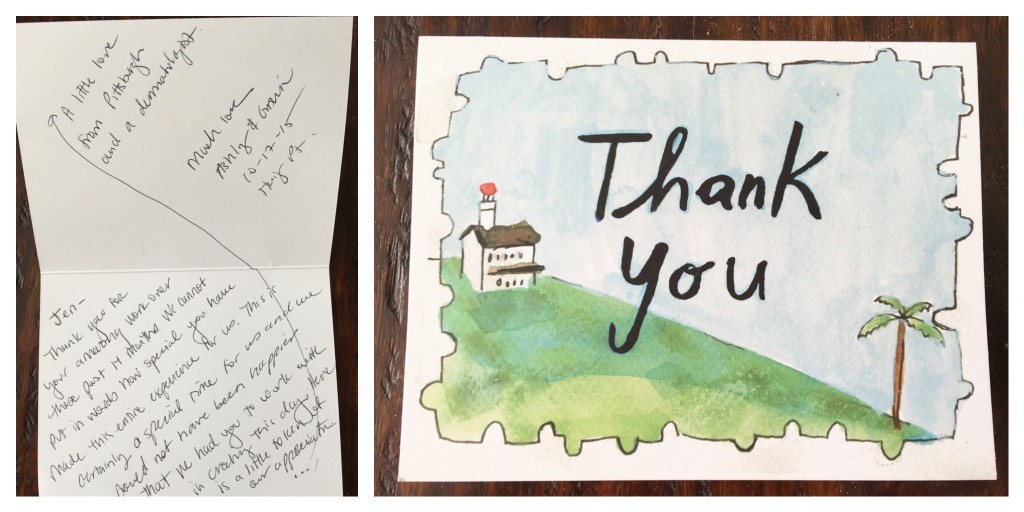 A little love
from Pittsburgh
and a dermatologist.
Much love
Ashly &
10-17-15
Haig Pt.
Jen-
Thank you for
your amazing work over
these past 14 months. We cannot
put in words how special you have
made this entire experience for us. This is
certainly a special time for us and we
could not have been happier
that we had you to work with
in creating this day. Here
is a little token of
our appreciation
Thank
you